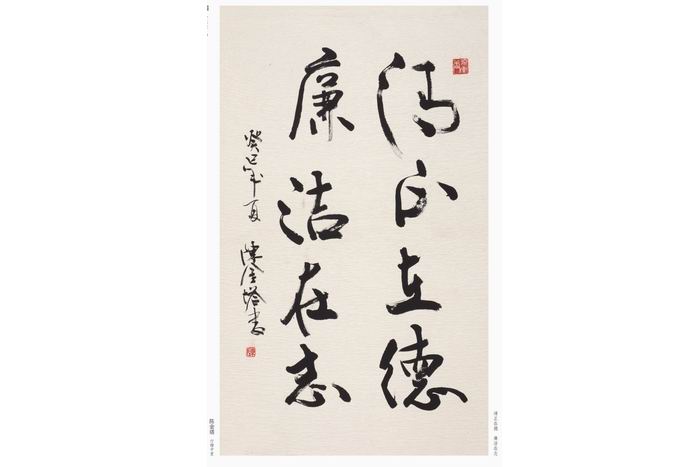 清正在德
廉洁在志
癸巳年夏 陈金塔书
清正在德 廉洁在志
陈金塔